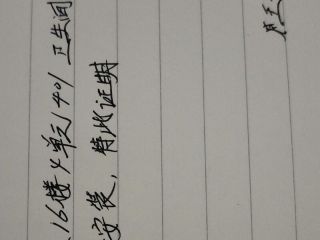 16楼4单元401卫生间
安装，特此证明